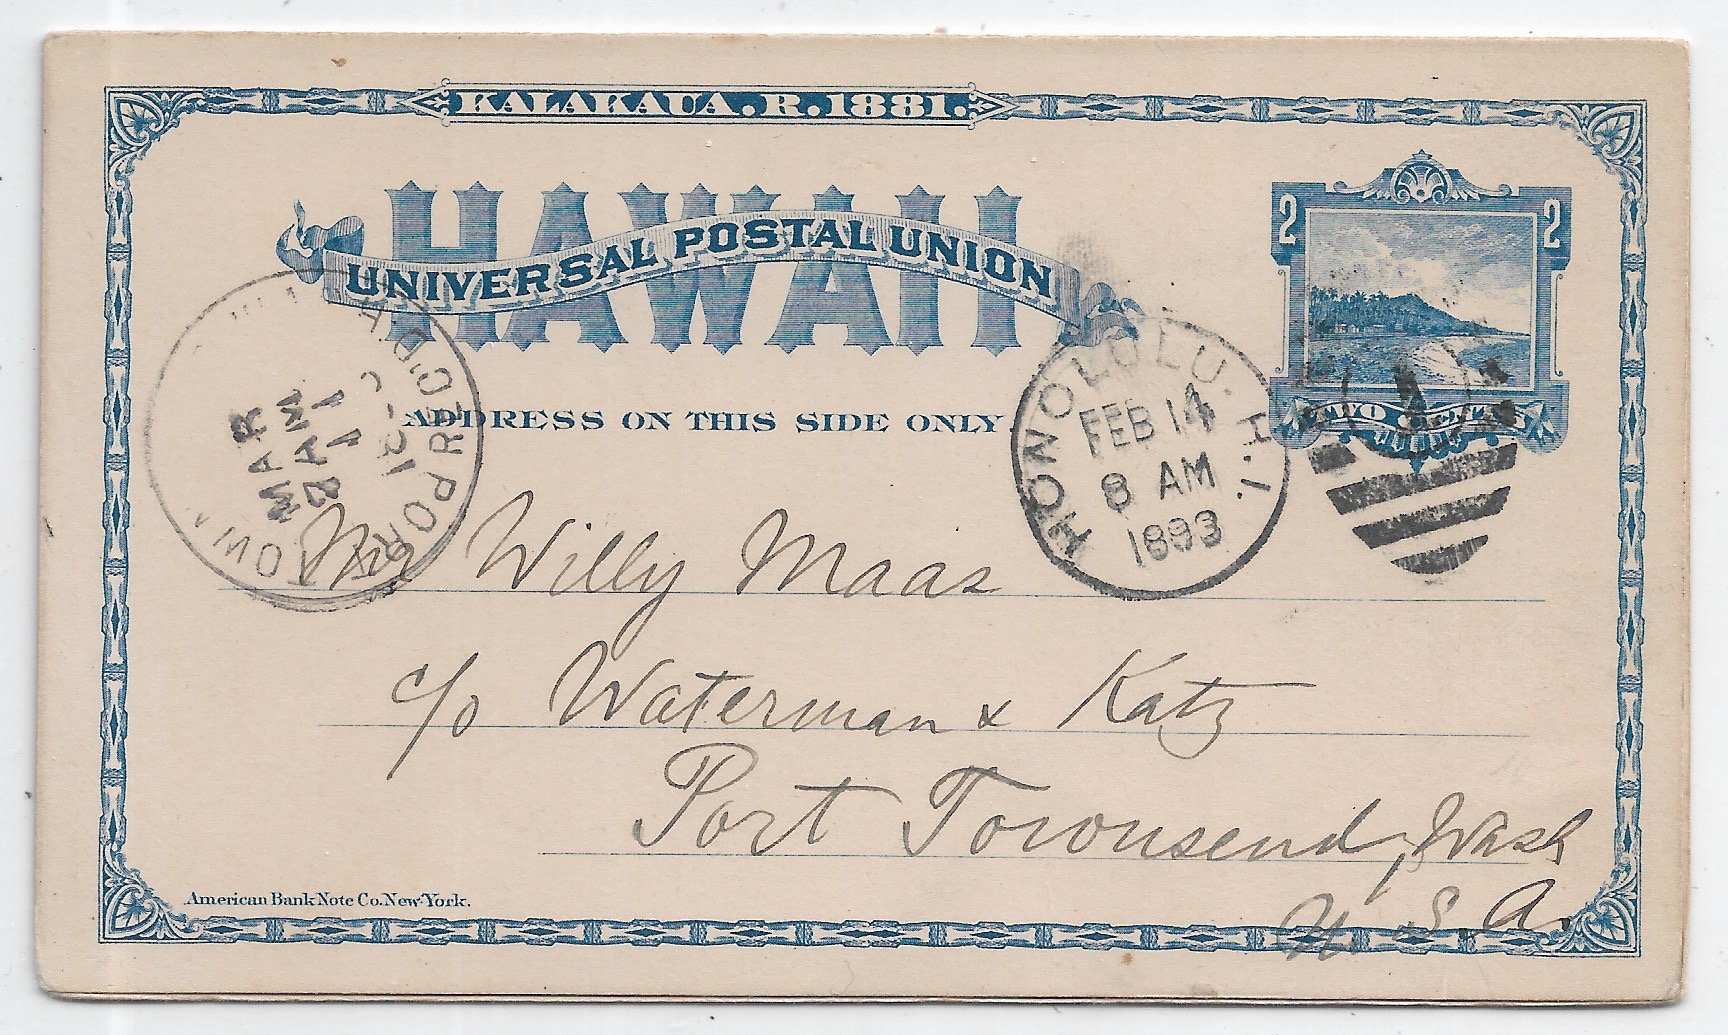 KALAKAUA. R. 1881.
HAWAII
UNIVERSAL POSTAL UNION
2 2
TWO CENTS
ADDRESS ON THIS SIDE ONLY
HONOLULU. H. I.
FEB 14
8 AM
1893
1
PORT TOWN
REC'D.
MAR
11
8 AM
Mr Willy Maas
c/o Waterman & Katz
Port Townsend, Wash
U. S. A.
American Bank Note Co. New York.